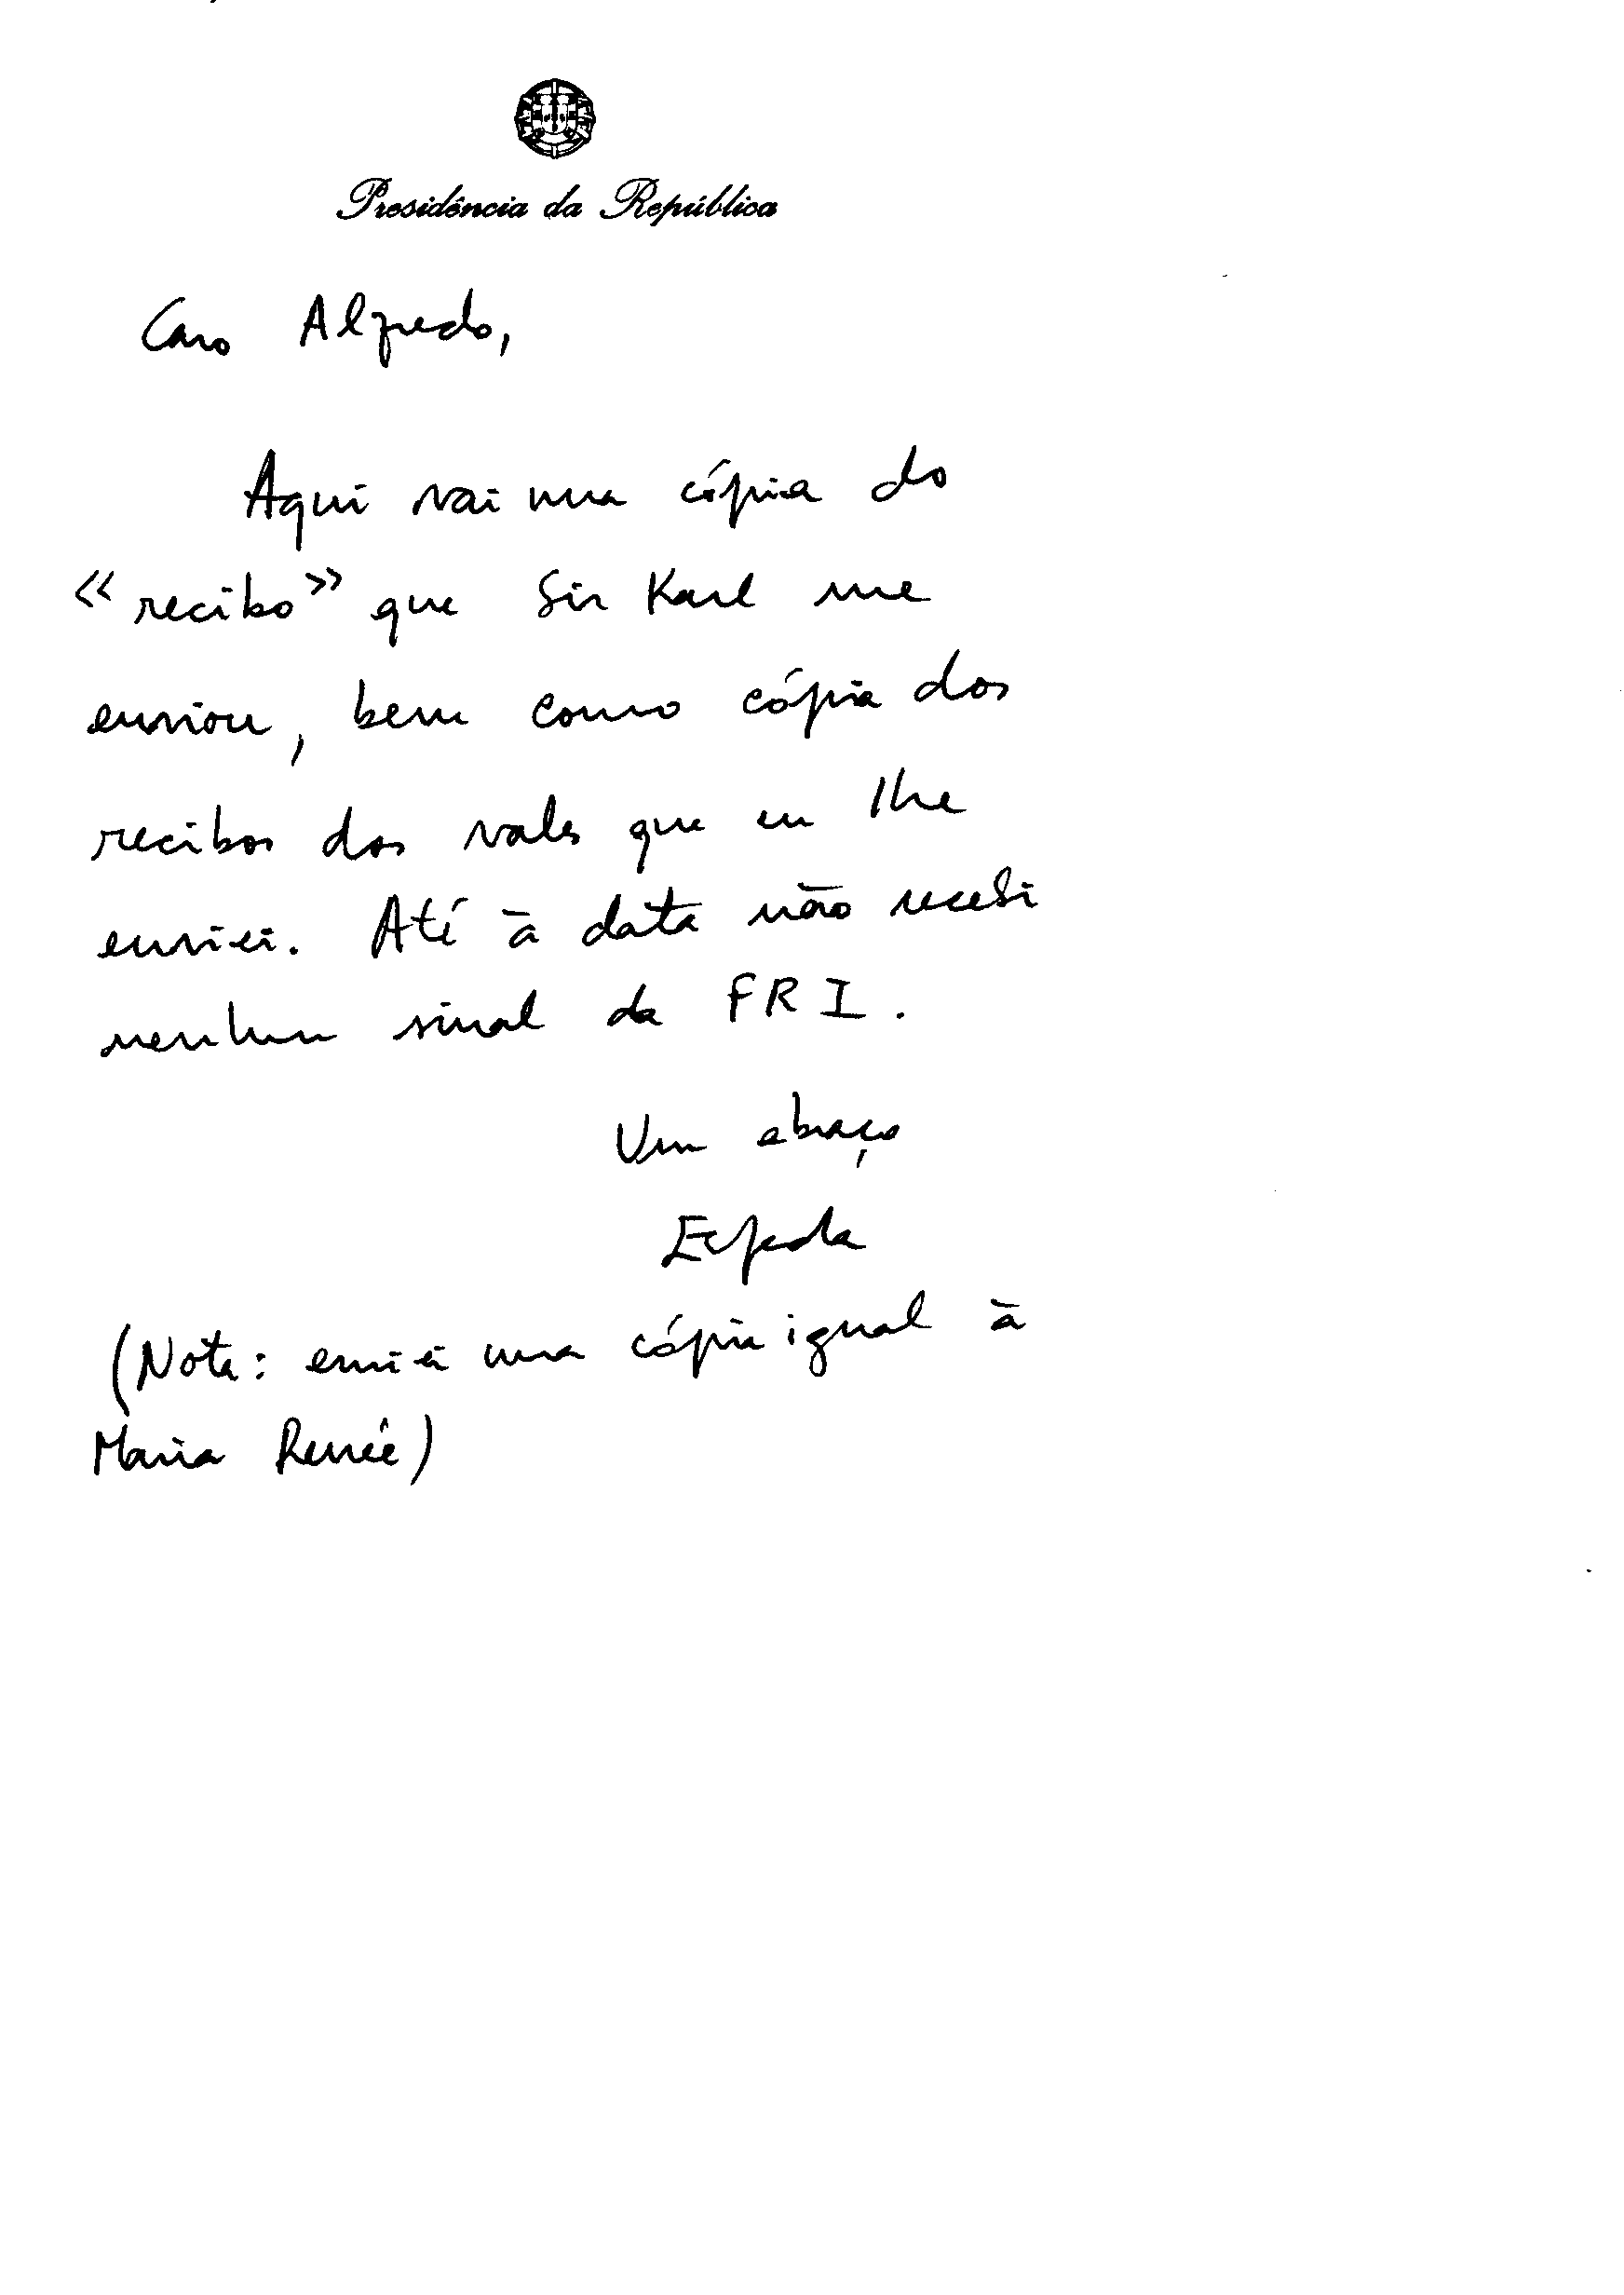 Presidência da República
Caro Alfredo,
Aqui vai uma cópia do
«recibo» que Sir Karl me
enviou, bem como cópia dos
recibos dos vales que eu lhe
enviei. Até à data não recebi
nenhum sinal da FRI.
Um abraço
(Nota: enviei uma cópia igual à
Maria Renée)